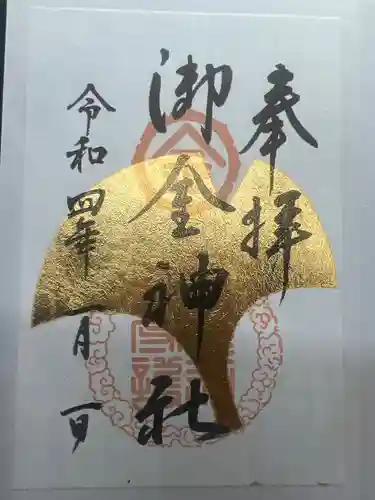 奉拝
御金神社
令和四年 一月 一日